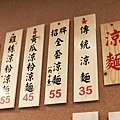 雞絲涼粉涼麵
55
黃瓜涼粉涼麵
45
招牌
全套涼麵
55
傳統涼麵
45
涼麵